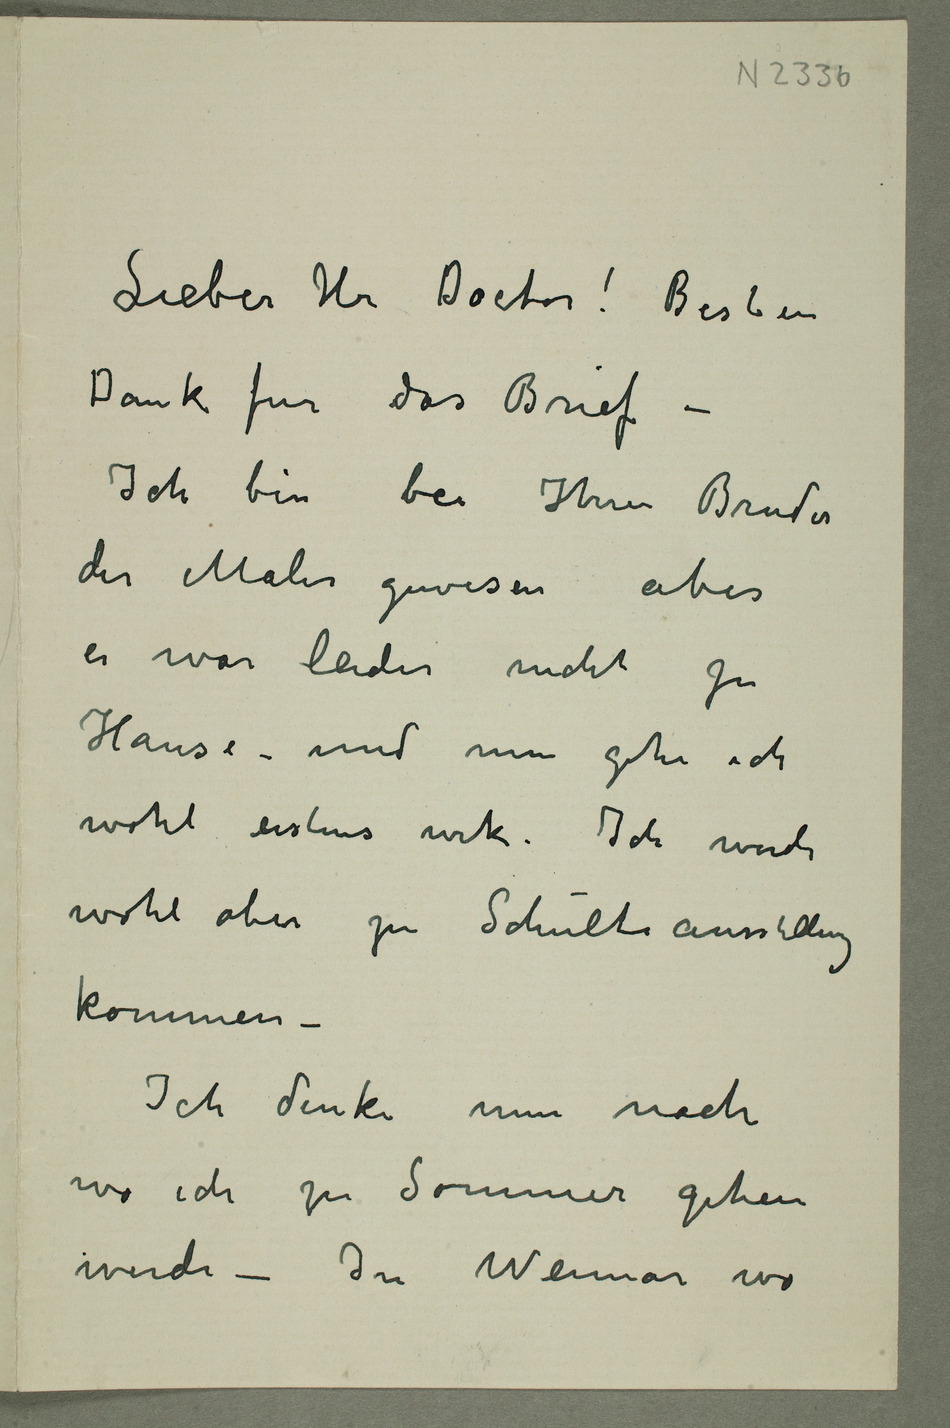 N 2336
Lieber Hr Doctor! Besten
Dank fur das Brief –
Ich bin bei Ihren Bruder
der Maler gewesen aber
er war leider nicht zu
Hause – und nun gehe ich
wohl erstens wek. Ich werde
wohl aber zu Schulte ausstellung
kommen –
Ich denke nun nach
wo ich zu Sommer gehen
werde – In Weimar wo